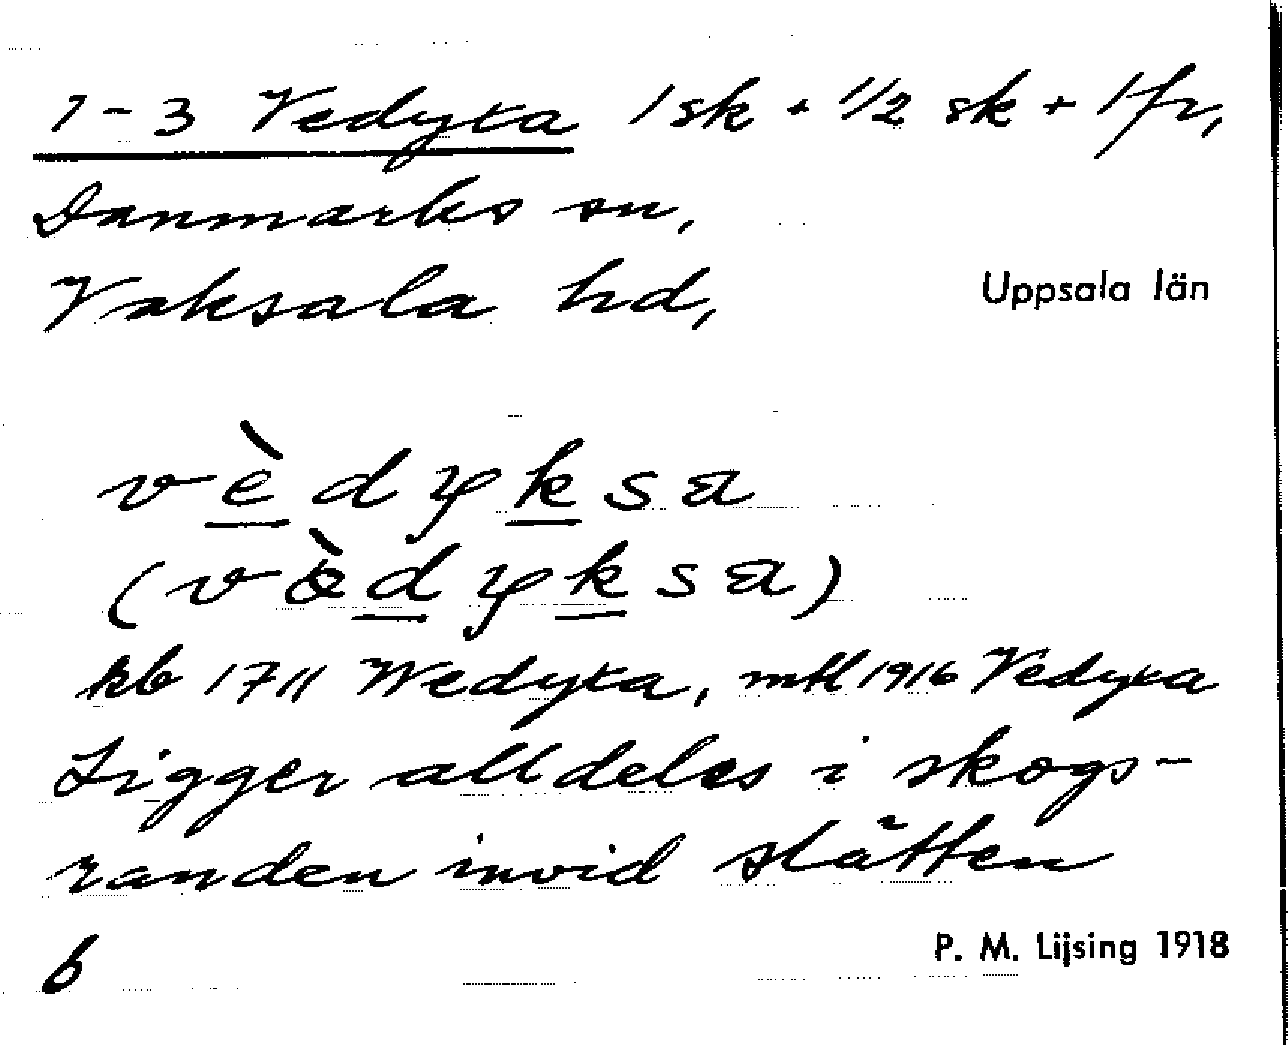 1-3 Vedyxa 1 sk + 1/2 sk + 1 fr,
Danmarks sn,
Vaksala hd,
Uppsala län
vèdyksa
(vèdyksa)
kb 1711 Wedyxa, mtl 1916 Vedyxa
Ligger alldeles i skogs-
randen invid slätten
6
P. M. Lijsing 1918